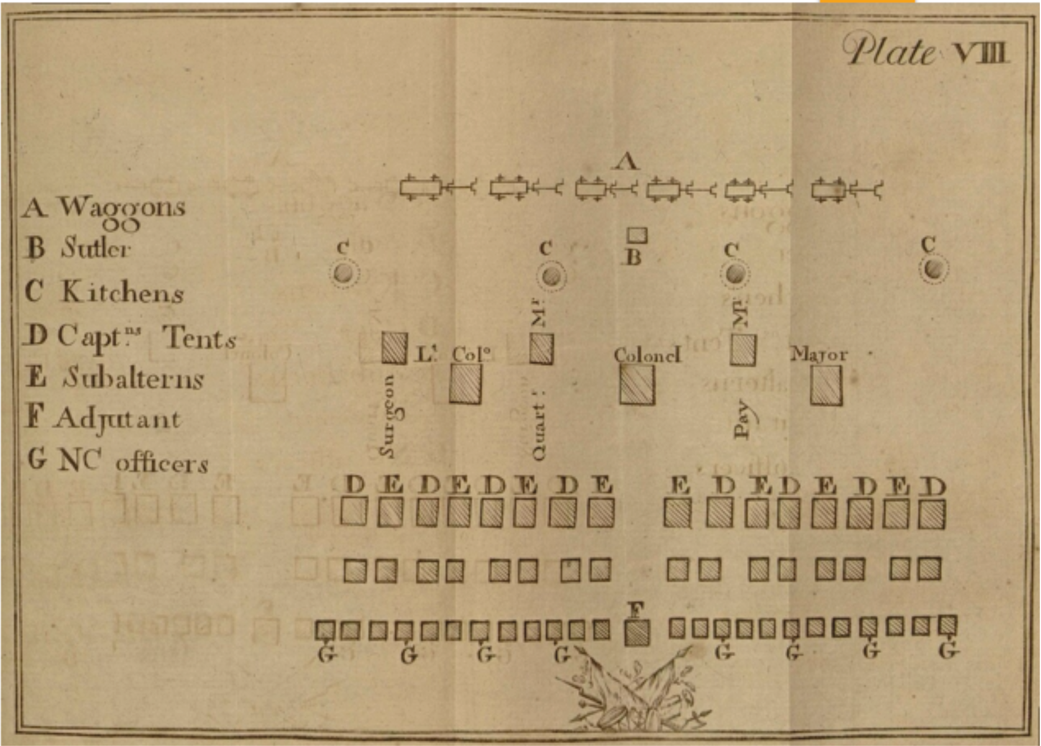 Plate VIII
A
A Waggons
B Sutler
C Kitchens
D Capt.ns Tents
E Subalterns
F Adjutant
G NC officers
C C B C C
Surgeon
Lt. Colo.
Quart.r Mr.
Colonel
Pay Mr.
Major
D E D E D E D E E D E D E D E D
F
G G G G G G G G